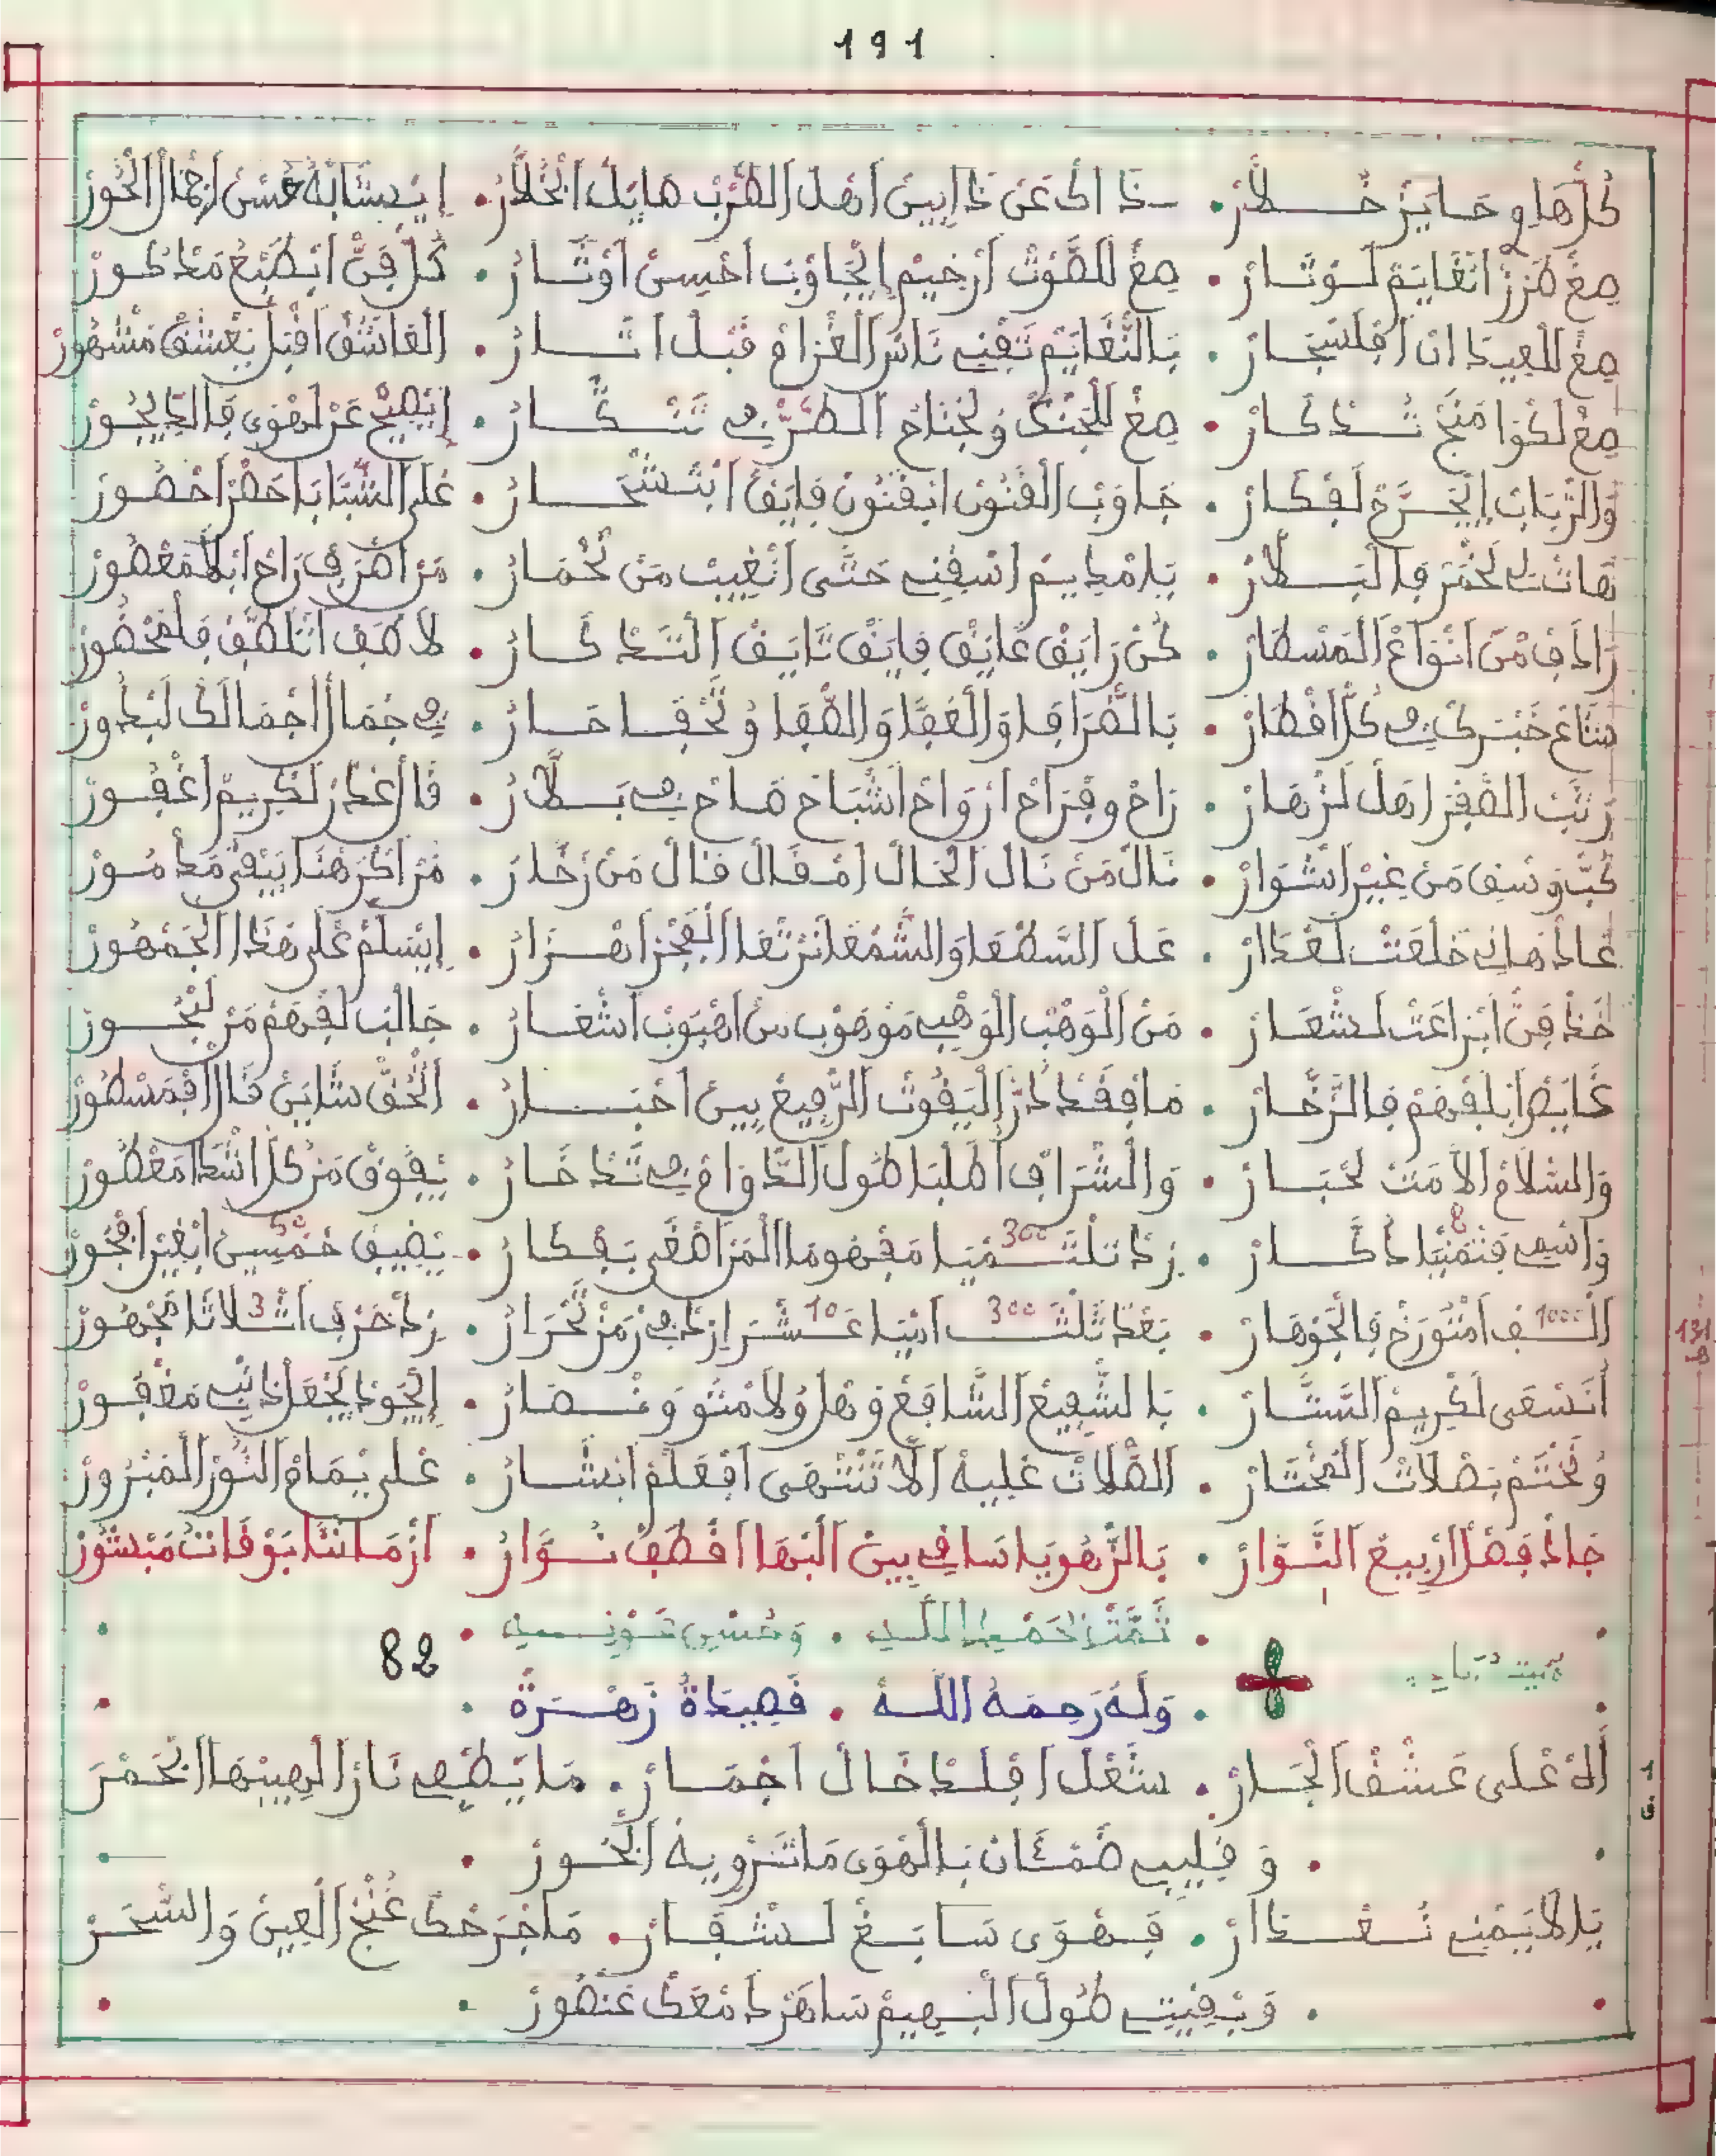 191
كلها و حايز خلار • خذا اك عن ذا ابين اهل الطرب هايك الخلار • إيبشابه غسن اجمال الحور
صغ طرز انغايم لوتار • صغ للصوت ارخيم إيجاوب احيسن اوتار • كل فن ابطبع مذكور
صغ للعيدان افلسحار • بالنغايم تفني ناس الغرام قبل اثار • العاشق اقبل يعشق مشهور
صغ لكوا منج تدكار • صغ للجنك ولجناح الطر في تنكار • إيصيح عن لهوى فالديجور
والرباب إيحرج لفكار • جاوب الفنون ابفنون فايق ابتسحار • على الشبابا حضر احضور
هات لي لخمر فالبلار • يامديم اسقني حتى انغيب من لخمار • من اصرف راح ابلا معصور
زادف من انواع المسطار • كن رايق عايق فايق تايق التدكار • لاطف اتلطف فلمحضور
شاع خبرك في كل اقطار • بالصرافا والعفا والصفا ولحفا حار • في جمال اجمالك لبدور
رتب الصفر اهل لزهار • راح وفراح ارواح اشباح صاح في بلار • قال اعدر لكريم اغفور
كب وسف من غير اشوار • نال من نال الحال امقال قال من زخار • من اكرهنا يبقى مدمور
عاد هاني خلعت لعدار • عل السطعا والشمعا نرتعا الفجر اهزار • إيسلم على هذا الجمهور
خذ فن ابراعت لشعار • من الوهب الوهبي موهوب من اهبوب اشعار • جالب لفهم من لبحور
غايص ابلفهم فالزخار • ما فقد در اليقوت الرفيع بين احبار • الحق شاين قال افمسطور
والسلام الامت لحبار • والشراف اطلبا طول الدوام في تدخار • يفوق من كل اشدا معطور
8
واسمي فتمنيا دكار • زد تلتميا مفهوما المراضغى بفكار • يضيف خمسين ابغير افجور
300
50
1000
الف امتورخ فالجوهار • بعد تلت اميا عشر ازد في رمز لحرار • زد حرف اتلاتا مجهور
300
10
3
131
انسعى لكريم الستار • بالشفيع الشافع وهلو لا متو ونصار • إيجود يجعل ذنبي مغفور
ولختم بصلات المختار • الصلات عليه الا تنتهى افعلم ابشار • على يمام النور المبرور
جاد فصل اربيع النوار • بالزهو يا ساقي بين البها اقطف نوار • ازمانا بوفات مبشور
تمت بحمد الله • وحسن عونه
82
وله رحمه الله • قصيدة زهرة
أله على عشق الجار • شعل اقلد خال اجمار • ما يطفي نار الهيبها الجمر
و قليب ضمئان بالهوى ما ترويه البحور
يلا لا يمني تعدار • فهوى سابغ لشفار • ما جرحك غنج العين والسحر
و بقيت طول البهيم ساهر دمعك غنضور